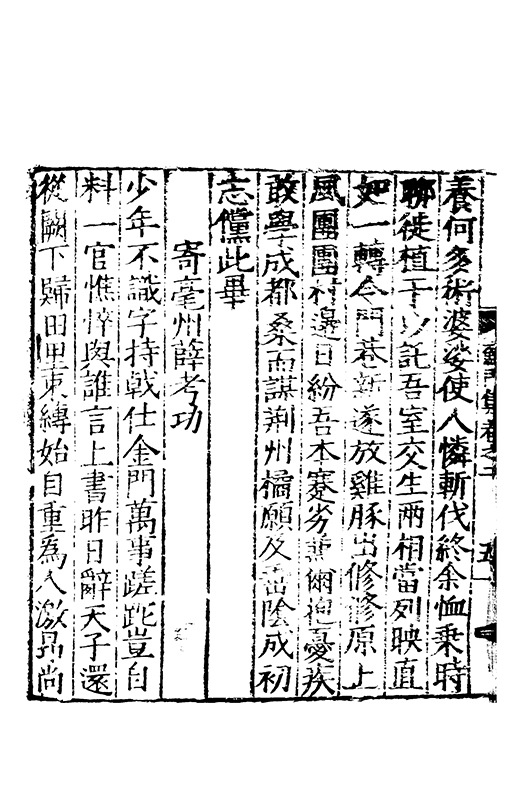 養何多術婆娑使人憐斬伐終余恤乗時
聊徙植于以託吾室交生兩相當列映直
如一轉令門巷新遂放雞豚出修修原上
風團團村邊日紛吾本蹇劣兼爾抱憂疾
敢學成都桑而謀荆州橘願及蕃陰成初
志儻此畢
寄亳州薛考功
少年不識字持戟仕金門萬事蹉跎豈自
料一官憔悴與誰言上書昨日辭天子還
從闕下歸田里束縛始自重為人激昂尚
集卷之二
五